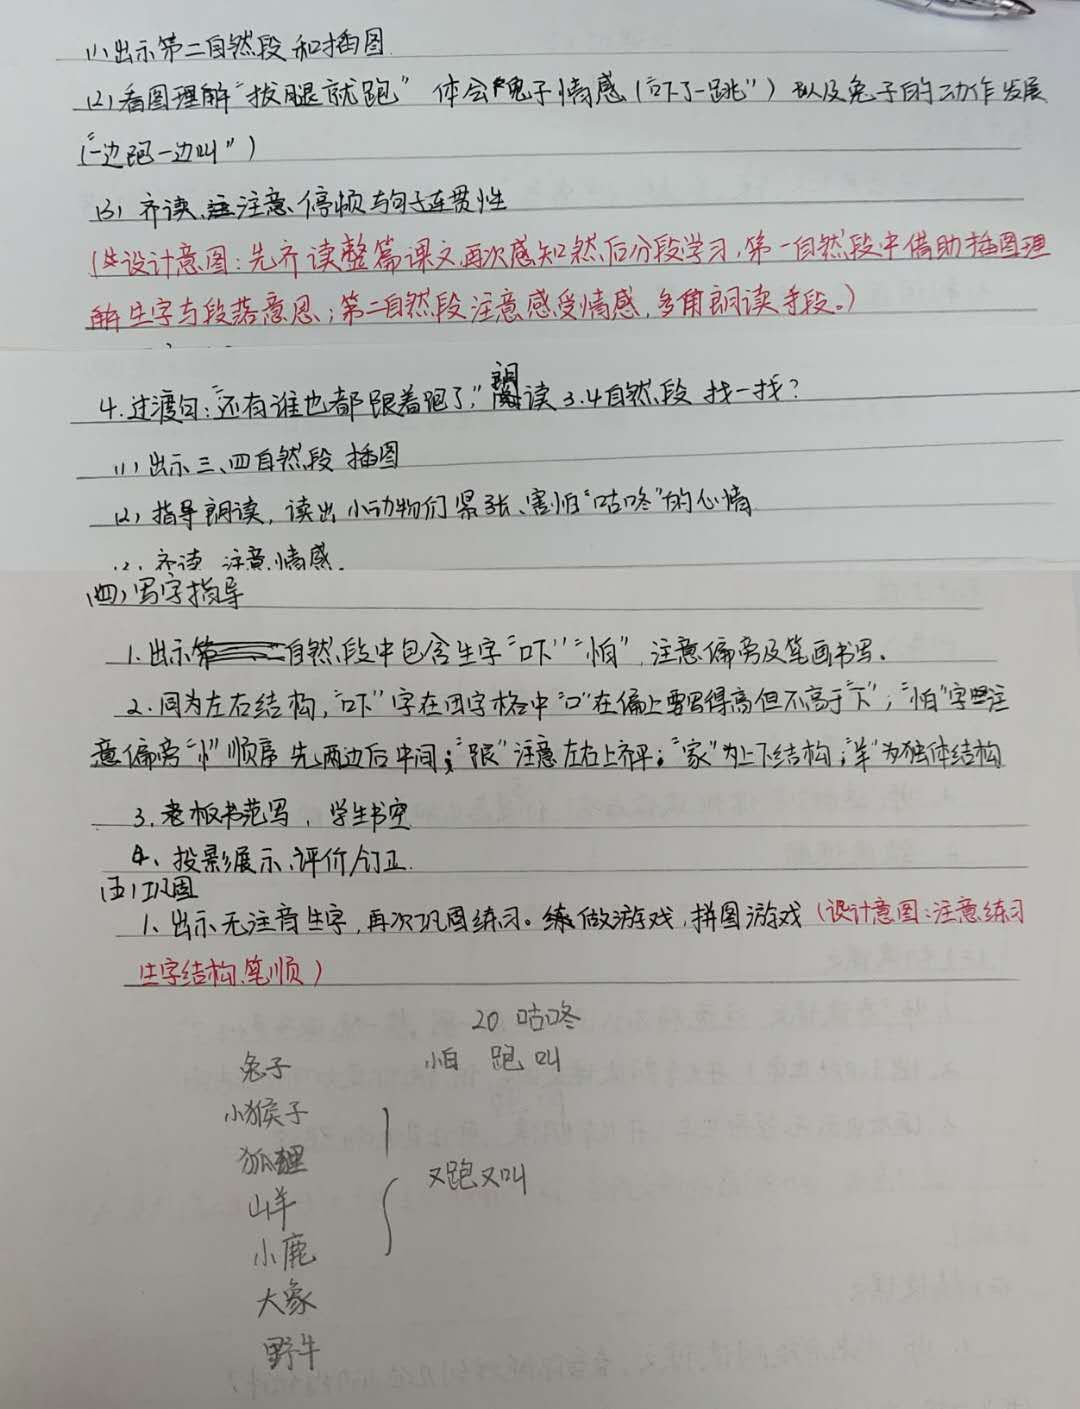 (1)出示第二自然段和插图
(2)看图理解“拔腿就跑” 体会兔子情感(“吓了一跳”)以及兔子的动作发展
(“一边跑一边叫”)
(3)齐读、注意停顿与句子连贯性
(设计意图:先齐读整篇课文再次感知然后分段学习,第一自然段中借助插图理
解生字与段落意思;第二自然段注意感受情感,多角朗读手段。)
4.过渡句:“还有谁也都跟着跑了,”朗读3.4自然段 找一找?
(1)出示三、四自然段 插图
(2)指导朗读,读出小动物们紧张、害怕“咕咚”的心情
齐读 注意情感。
(四)写字指导
1.出示自然段中包含生字“吓”“怕”,注意偏旁及笔画书写、
2.同为左右结构,“吓”字在田字格中“口”在偏上要写得高但不高于“下”;“怕”字注
意偏旁“忄”顺序 先两边后中间;“跟”注意左右上齐平;“家”为上下结构;“羊”为独体结构
3.老板书范写,学生书空
4、投影展示、评价/订正.
(五)巩固
1、出示无注音生字,再次巩固练习。做游戏,拼图游戏(设计意图:注意练习
生字结构、笔顺)
20 咕咚
兔子 怕 跑 叫
小猴子
狐狸
又跑又叫
山羊
小鹿
大象
野牛